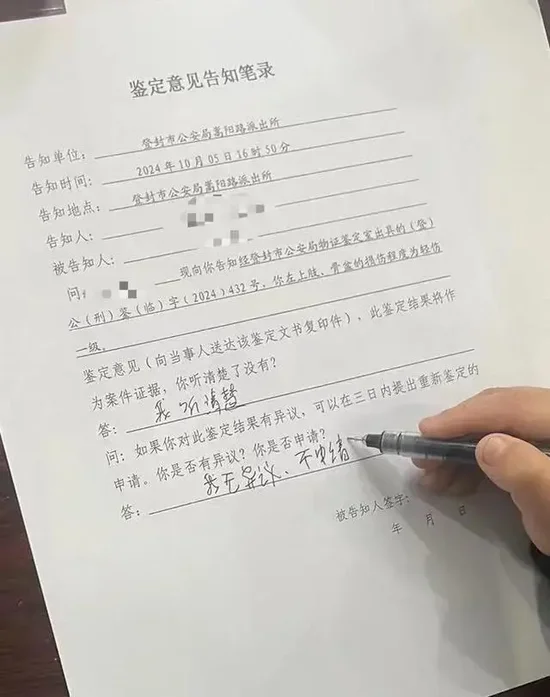 鉴定意见告知笔录
告知单位： 登封市公安局嵩阳路派出所
告知时间： 2024年10月05日16时50分
告知地点： 登封市公安局嵩阳路派出所
告知人：
被告知人：
问： 现向你告知经登封市公安局物证鉴定室出具的（登）
公（刑）鉴（临）字（2024）432号，你左上肢、骨盆的损伤程度为轻伤
一级。
鉴定意见（向当事人送达该鉴定文书复印件），此鉴定结果将作
为案件证据，你听清楚了没有？
答： 我听清楚
问：如果你对此鉴定结果有异议，可以在三日内提出重新鉴定的
申请。你是否有异议？你是否申请？
答： 我无异议、不申请
被告知人签字：
年 月 日